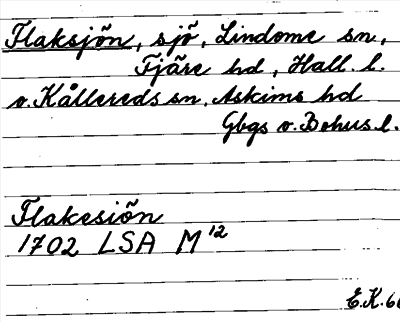 Flaksjön, sjö, Lindome sn,
Fjäre hd, Hall. l.
o. Kållereds sn, Askims hd
Gbgs o. Bohus l.
Flakesiön
1702 LSA M 12
E.K. 60